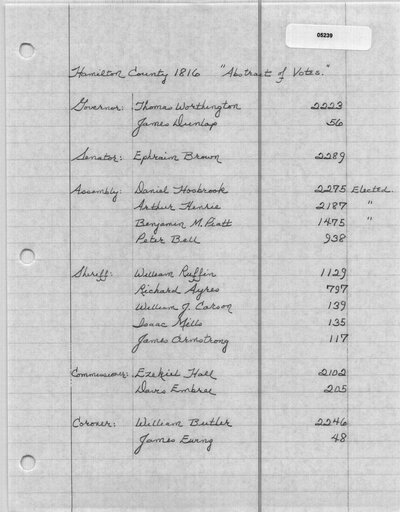 05239
Hamilton County 1816 "Abstract of Votes."
Governor: Thomas Worthington 2223
James Dunlap 56
Senator: Ephraim Brown 2289
Assembly: Daniel Hosbrook 2275 Elected.
Arthur Henrie 2187 "
Benjamin M. Piatt 1475 "
Peter Bell 938
Sheriff: William Ruffin 1129
Richard Ayres 797
William J. Carson 139
Isaac Mills 135
James Armstrong 117
Commissioner: Ezekiel Hall 2102
Davis Embree 205
Coroner: William Butler 2246
James Ewing 48